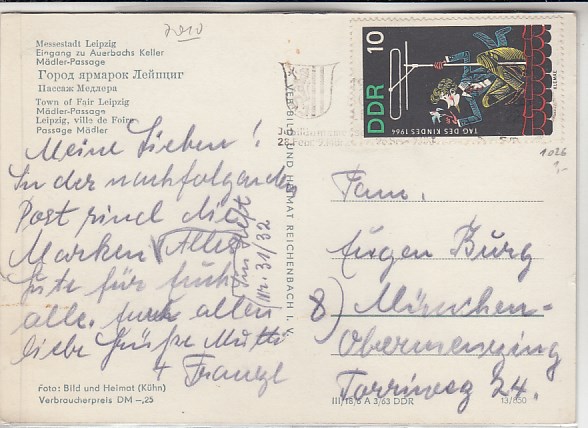 2010
Messestadt Leipzig
Eingang zu Auerbachs Keller
Mädler-Passage
Город ярмарок Лейпциг
Пассаж Медлера
Town of Fair Leipzig
Mädler-Passage
Leipzig, ville de Foire
Passage Mädler
Meine Lieben!
In der nachfolgenden
Post sind die
Marken Alles
Gute für Euch
alle. Euch allen
liebe Grüße Mutti
+ Franzl
Im Heft
Nr. 31/32
Foto: Bild und Heimat (Kühn)
Verbraucherpreis DM -,25
VEB BILD UND HEIMAT REICHENBACH I. V.
10
DDR
TAG DES KINDES 1964
KLEMKE
1026
1,-
Fam.
Eugen Burg
8) München-
Obermenzing
Torriweg 24.
III/18/6 A 3/63 DDR
13/550